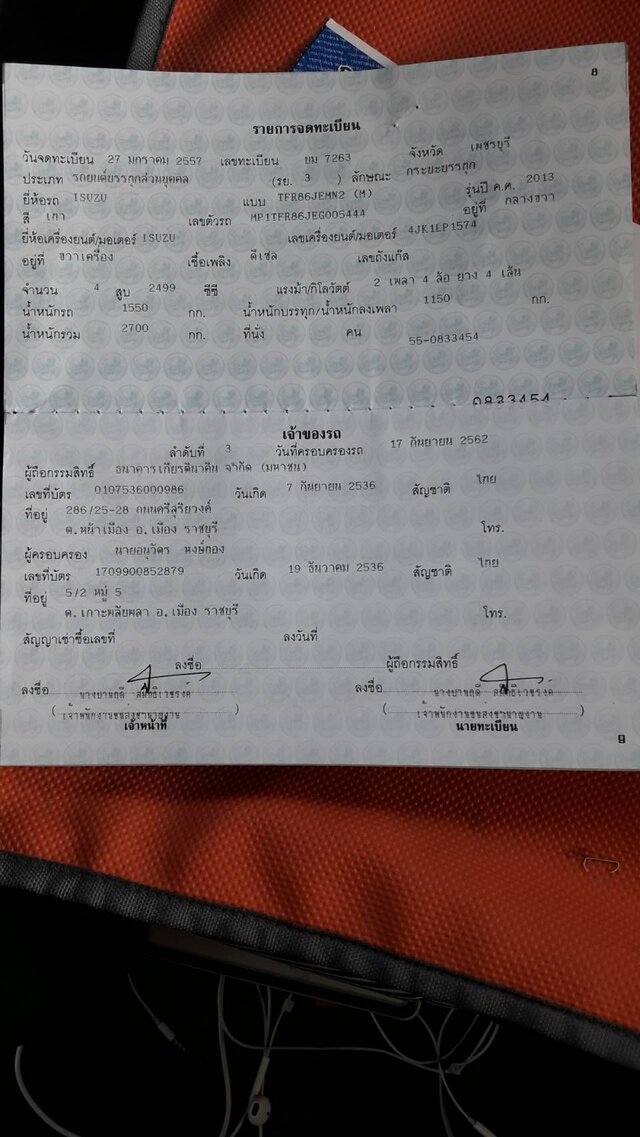 8
รายการจดทะเบียน
วันจดทะเบียน 27 มกราคม 2557 เลขทะเบียน บม 7263 จังหวัด เพชรบุรี
ประเภท รถยนต์บรรทุกส่วนบุคคล (รย. 3 ) ลักษณะ กระบะบรรทุก
ยี่ห้อรถ ISUZU แบบ TFR86JEMN2 (M) รุ่นปี ค.ศ. 2013
สี เทา เลขตัวรถ MP1TFR86JEG005444 อยู่ที่ กลางขวา
ยี่ห้อเครื่องยนต์/มอเตอร์ ISUZU เลขเครื่องยนต์/มอเตอร์ 4JK1LP1574
อยู่ที่ ขวาเครื่อง เชื้อเพลิง ดีเซล เลขถังแก๊ส
จำนวน 4 สูบ 2499 ซีซี แรงม้า/กิโลวัตต์ 2 เพลา 4 ล้อ ยาง 4 เส้น
น้ำหนักรถ 1550 กก. น้ำหนักบรรทุก/น้ำหนักลงเพลา 1150 กก.
น้ำหนักรวม 2700 กก. ที่นั่ง คน 55-0833454
0833454
เจ้าของรถ
ลำดับที่ 3 วันที่ครอบครองรถ 17 กันยายน 2562
ผู้ถือกรรมสิทธิ์ ธนาคารเกียรตินาคิน จำกัด (มหาชน)
เลขที่บัตร 0107536000986 วันเกิด 7 กันยายน 2536 สัญชาติ ไทย
ที่อยู่ 286/25-28 ถนนศรีสุริยวงศ์
ต.หน้าเมือง อ.เมือง ราชบุรี โทร.
ผู้ครอบครอง นายอนุวัตร หงษ์ทอง
เลขที่บัตร 1709900852879 วันเกิด 19 ธันวาคม 2536 สัญชาติ ไทย
ที่อยู่ 5/2 หมู่ 5
ต.เกาะพลับพลา อ.เมือง ราชบุรี โทร.
สัญญาเช่าซื้อเลขที่ ลงวันที่
ลงชื่อ ผู้ถือกรรมสิทธิ์
ลงชื่อ ลงชื่อ
(เจ้าพนักงานขนส่งชำนาญงาน) (เจ้าพนักงานขนส่งชำนาญงาน)
เจ้าหน้าที่ นายทะเบียน
9